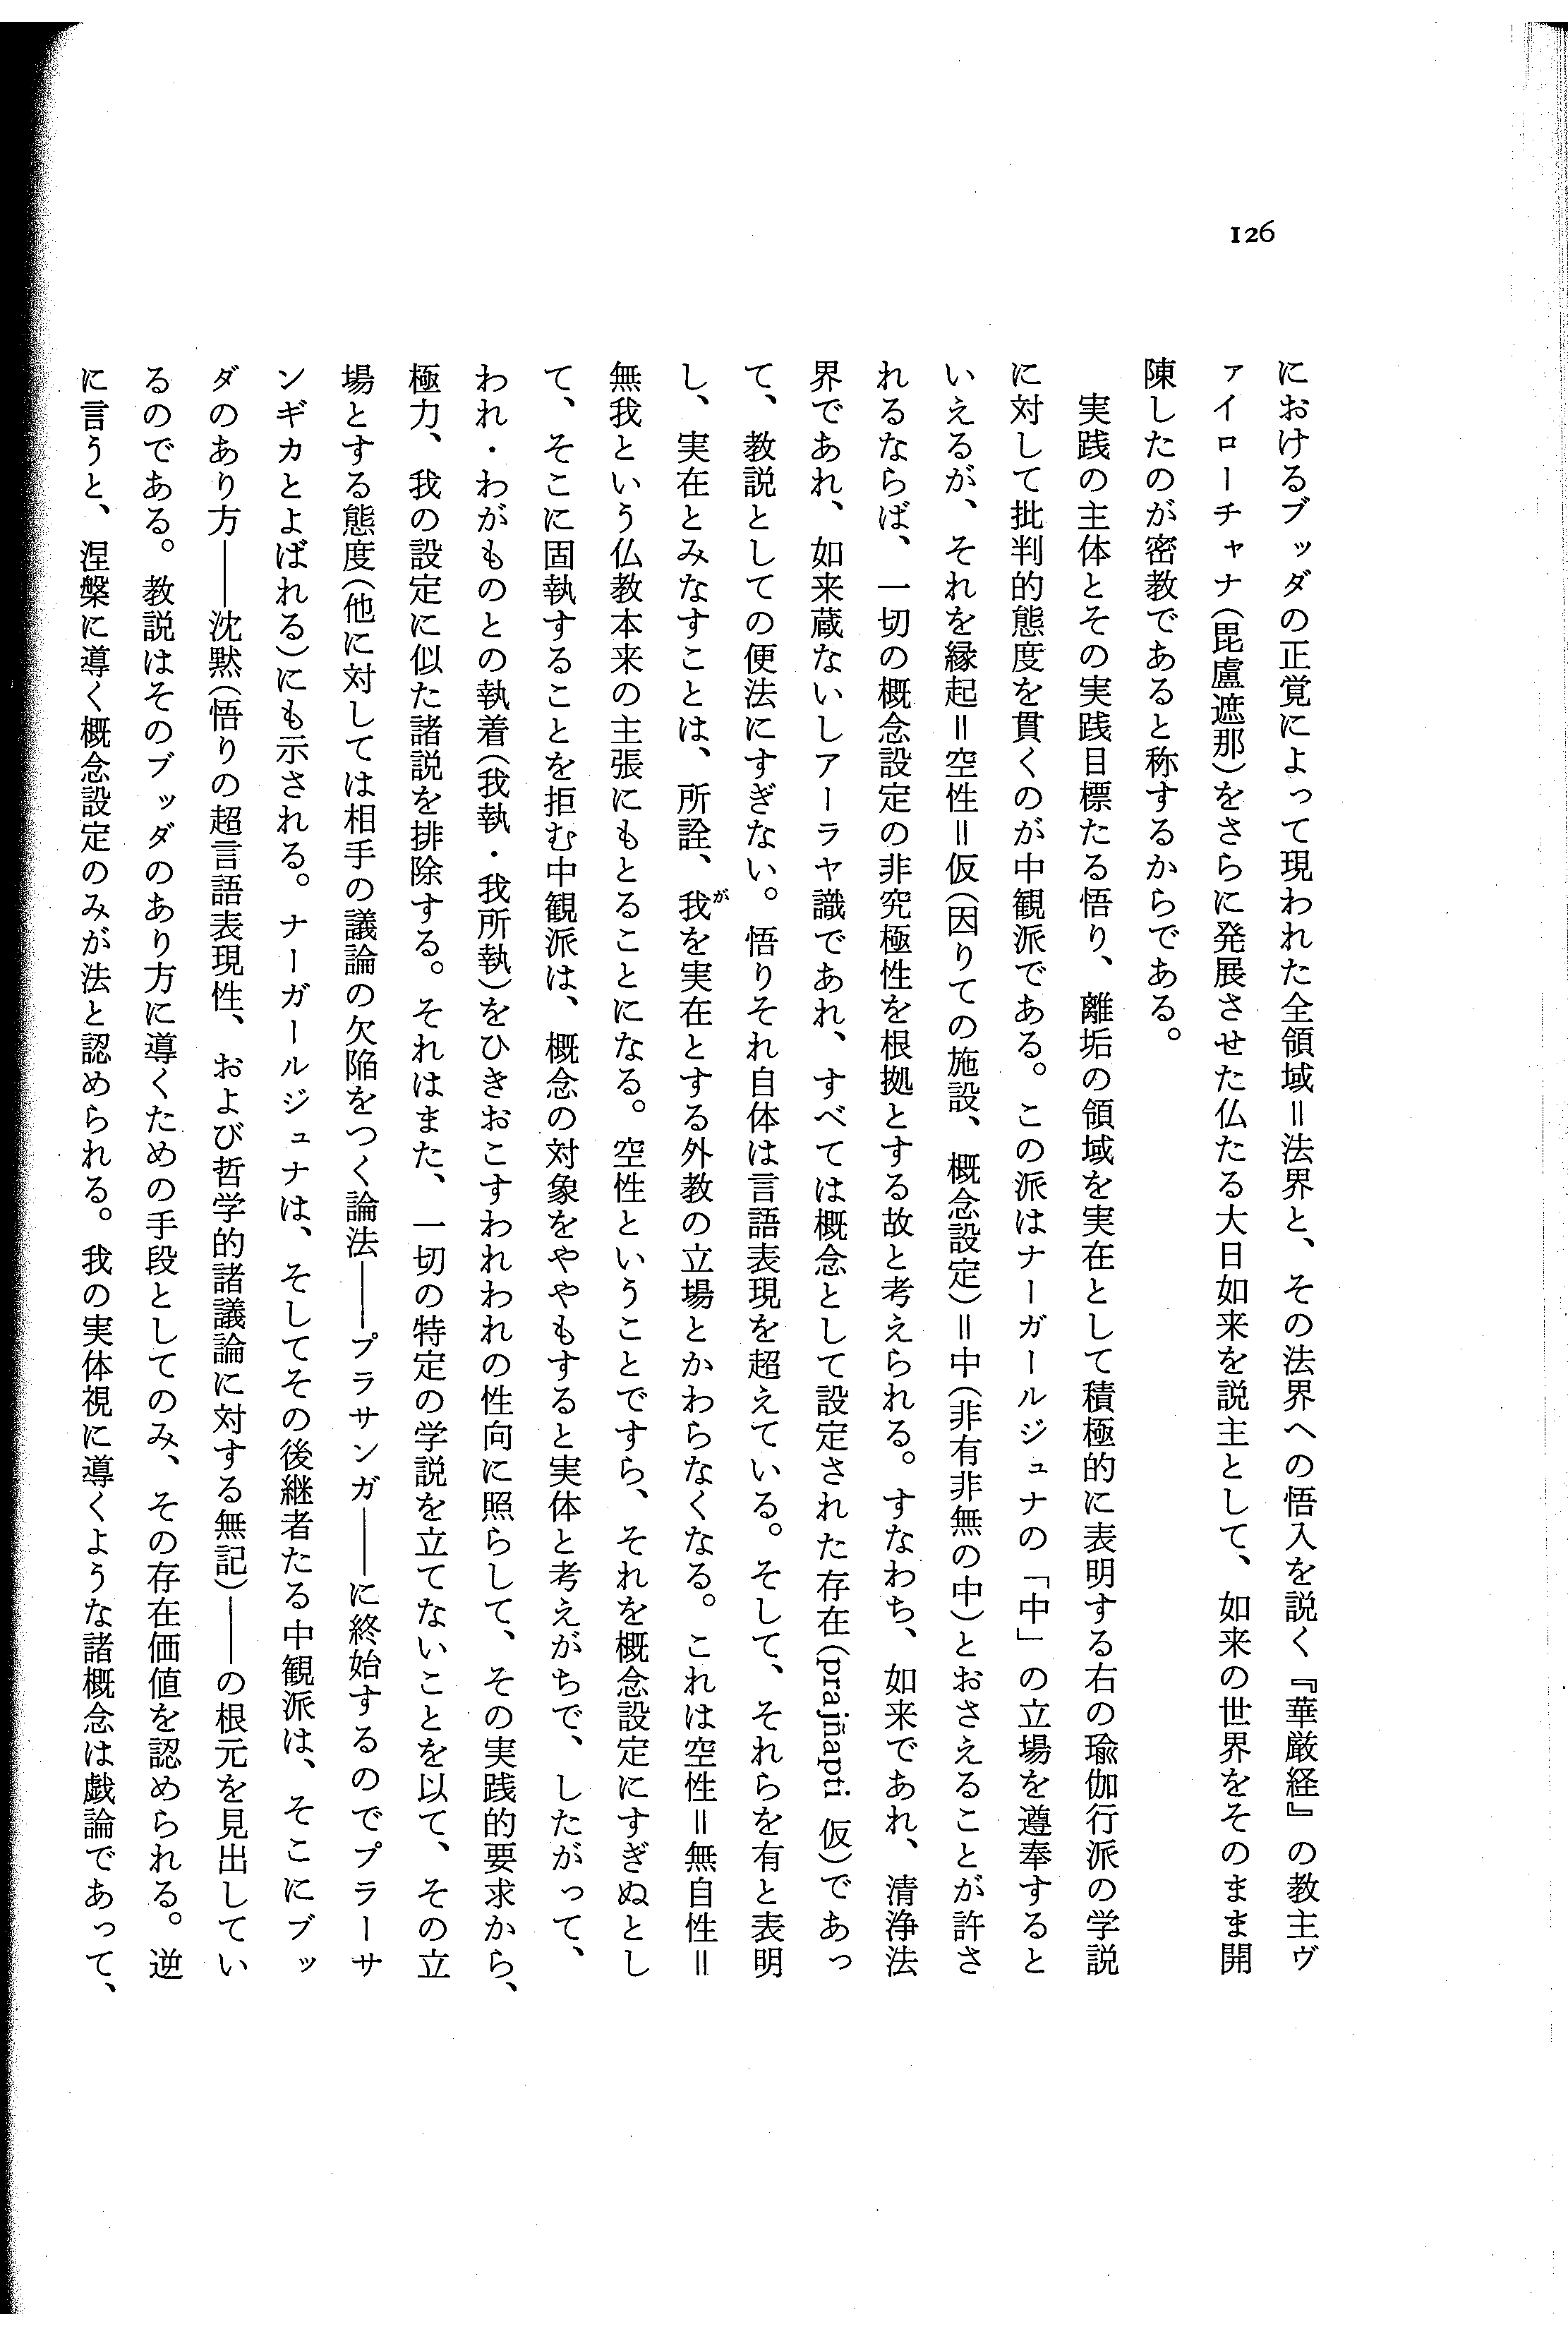 126
におけるブッダの正覚によって現われた全領域＝法界と、その法界への悟入を説く『華厳経』の教主ヴ
ァイローチャナ(毘盧遮那)をさらに発展させた仏たる大日如来を説主として、如来の世界をそのまま開
陳したのが密教であると称するからである。
　実践の主体とその実践目標たる悟り、離垢の領域を実在として積極的に表明する右の瑜伽行派の学説
に対して批判的態度を貫くのが中観派である。この派はナーガールジュナの「中」の立場を遵奉すると
いえるが、それを縁起＝空性＝仮(因りての施設、概念設定)＝中(非有非無の中)とおさえることが許さ
れるならば、一切の概念設定の非究極性を根拠とする故と考えられる。すなわち、如来であれ、清浄法
界であれ、如来蔵ないしアーラヤ識であれ、すべては概念として設定された存在(prajñapti 仮)であっ
て、教説としての便法にすぎない。悟りそれ自体は言語表現を超えている。そして、それらを有と表明
し、実在とみなすことは、所詮、我がを実在とする外教の立場とかわらなくなる。これは空性＝無自性＝
無我という仏教本来の主張にもとることになる。空性ということですら、それを概念設定にすぎぬとし
て、そこに固執することを拒む中観派は、概念の対象をややもすると実体と考えがちで、したがって、
われ・わがものとの執着(我執・我所執)をひきおこすわれわれの性向に照らして、その実践的要求から、
極力、我の設定に似た諸説を排除する。それはまた、一切の特定の学説を立てないことを以て、その立
場とする態度(他に対しては相手の議論の欠陥をつく論法――プラサンガ――に終始するのでプラーサ
ンギカとよばれる)にも示される。ナーガールジュナは、そしてその後継者たる中観派は、そこにブッ
ダのあり方――沈黙(悟りの超言語表現性、および哲学的諸議論に対する無記)――の根元を見出してい
るのである。教説はそのブッダのあり方に導くための手段としてのみ、その存在価値を認められる。逆
に言うと、涅槃に導く概念設定のみが法と認められる。我の実体視に導くような諸概念は戯論であって、